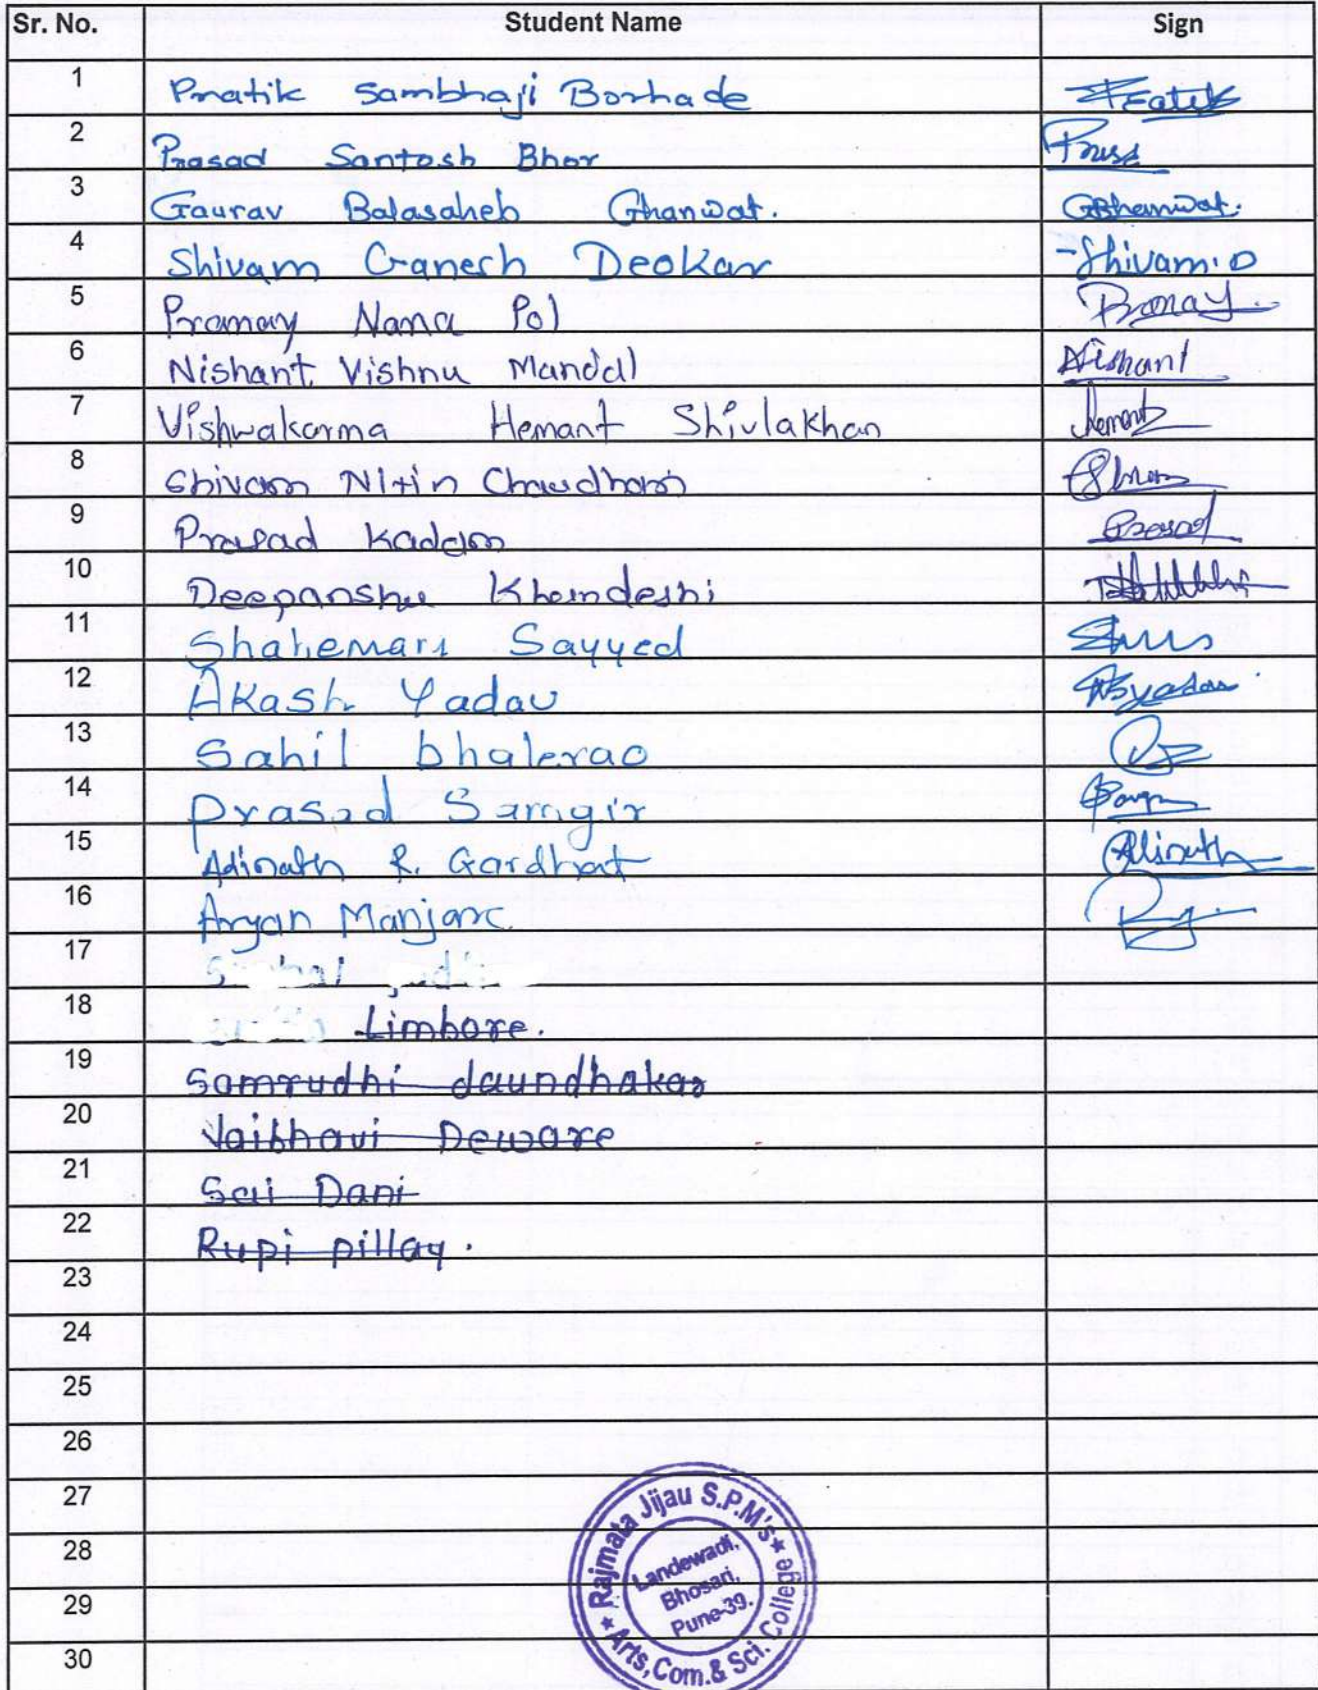 Sr. No. Student Name Sign
1 Pratik Sambhaji Borhade
2 Prasad Santosh Bhor
3 Gaurav Balasaheb Ghanwat. GBhanwat.
4 Shivam Ganesh Deokar Shivam.D
5 Pranay Nana Pol Pranay
6 Nishant Vishnu Mandal Nishant
7 Vishwakarma Hemant Shivlakhan Hemant
8 Shivam Nitin Chaudhari
9 Prasad Kadam Prasad
10 Deepanshu Khamdeshi
11 Shahemari Sayyed
12 Akash Yadav
13 Sahil bhalerao
14 Prasad Samgir
15 Adinath R. Gardhat Adinath
16 Aryan Manjare
17
18 Limbore.
19 Samrudhi daundhakar
20 Vaibhavi Deware
21 Sai Dani
22 Rupi pillay.
23
24
25
26
27
28
29
30
Rajmata Jijau S.P.M's
Arts, Com. & Sci. College
Landewadi,
Bhosari,
Pune-39.